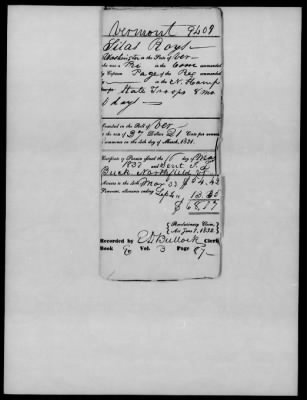 Vermont 9409
Silas Rays
Washington in the State of Ver
who was a Pri in the Com commanded
by Captain Page of the Reg commanded
by in the N. Hamp
State Troops 8 mo
6 days
Inscribed on the Roll of Ver
at the rate of 27 Dollars 21 Cents per annum
to commence on the 4th day of March, 1831.
Certificate of Pension issued the 10 day of May
1833 and Sent J. G.
Buck Northfield Vt
Arrears to the 4th Mar 33 $54.42
Semi-anl. allowance ending Sept 4 13.60
$68.02
Revolutionary Claim,
Act June 7, 1832.
Recorded by E D Bullock Clerk
Book E Vol. 3 Page 87